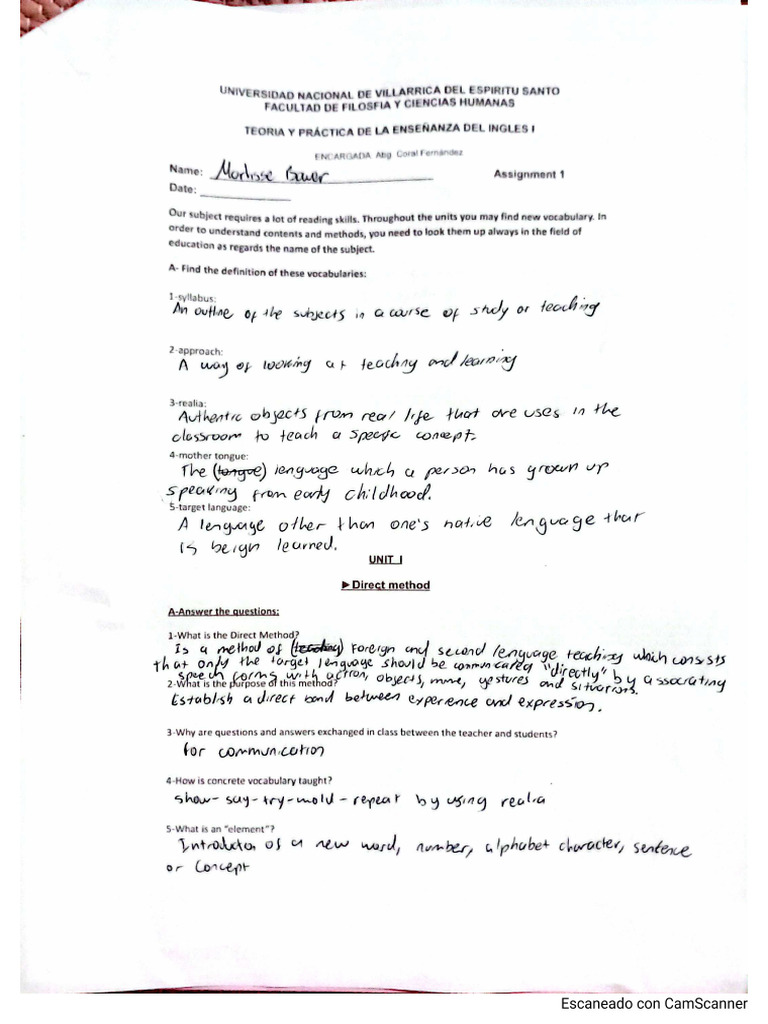 UNIVERSIDAD NACIONAL DE VILLARRICA DEL ESPIRITU SANTO
FACULTAD DE FILOSFIA Y CIENCIAS HUMANAS
TEORIA Y PRÁCTICA DE LA ENSEÑANZA DEL INGLES I
ENCARGADA Abg Coral Fernández
Name: Marlisse Bauer Assignment 1
Date:
Our subject requires a lot of reading skills. Throughout the units you may find new vocabulary. In
order to understand contents and methods, you need to look them up always in the field of
education as regards the name of the subject.
A- Find the definition of these vocabularies:
1-syllabus:
An outline of the subjects in a course of study or teaching
2-approach:
A way of looking at teaching and learning
3-realia:
Authentic objects from real life that are uses in the
classroom to teach a specific concept.
4-mother tongue:
The (tongue) lenguage which a person has grown up
speaking from early childhood.
5-target language:
A lenguage other than one's native lenguage that
is beign learned.
UNIT I
►Direct method
A-Answer the questions:
1-What is the Direct Method?
Is a method of (teaching) foreign and second lenguage teaching which consists
that only the target lenguage should be communicated "directly" by associating
speech forms with action, objects, mime, gestures and situations.
2-What is the purpose of this method?
Establish a direct bond between experience and expression.
3-Why are questions and answers exchanged in class between the teacher and students?
for communication
4-How is concrete vocabulary taught?
show-say-try-mold-repeat by using realia
5-What is an "element"?
Introduction of a new word, number, alphabet character, sentence
or concept
Escaneado con CamScanner